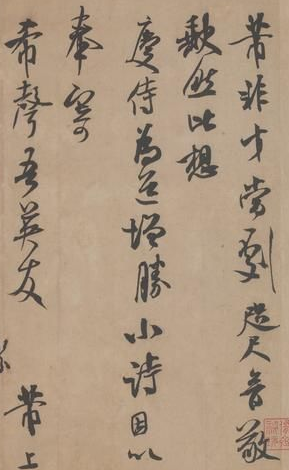 芾非才當劇咫尺音敬
缺然比想
慶侍為道增勝小詩因以
奉寄
希聲吾英友 芾上